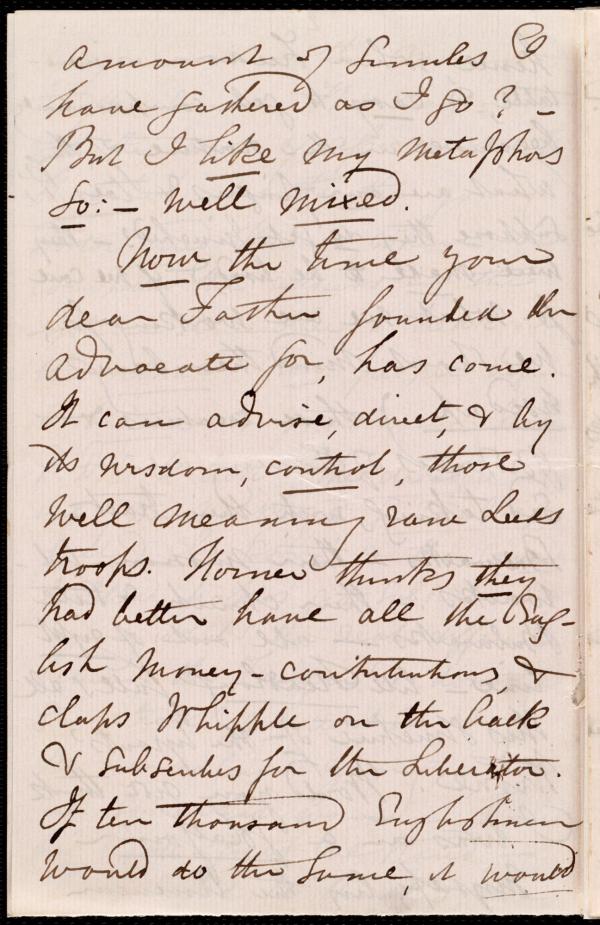 amount of similes
have gathered as I go? —
But I like my metaphors
so: — well mixed.
Now the time your
dear Father founded the
advocate for, has come.
It can advise, direct, & by
its wisdom, control, those
well meaning raw Leeds
troops. Horner thinks they
had better have all the Eng-
lish money-contributions, &
claps Whipple on the back
& subscribes for the Liberator.
If ten thousand Englishmen
would do the same, it would